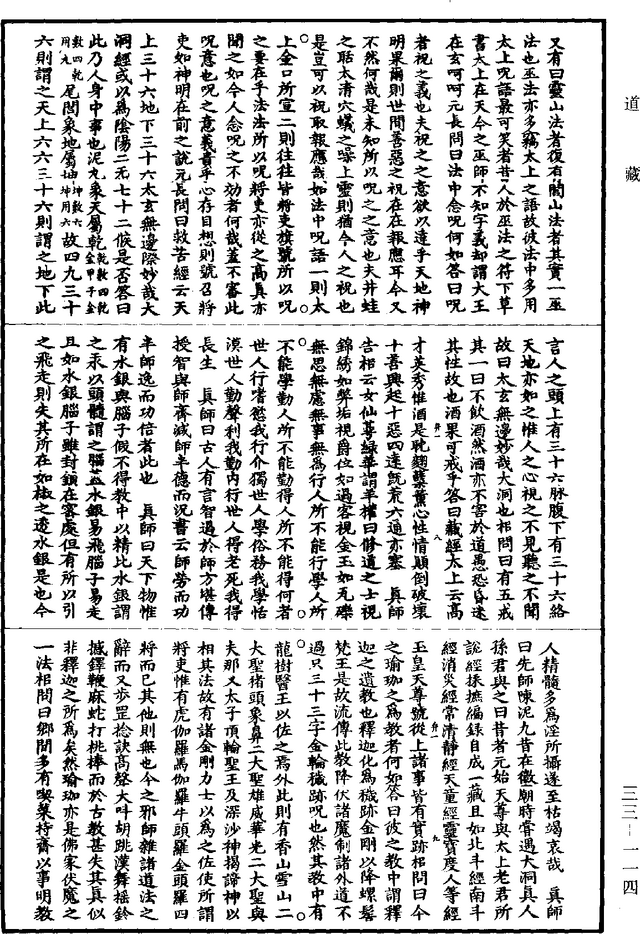 道藏
又有曰靈山法者復有閭山法者其實一巫
法也巫法亦多竊太上之語故彼法中多用
太上呪語最可笑者昔人於巫法之符下草
書太上在天今之巫師不知字義却謂大王
在玄呵呵元長問曰法中念呪何如答曰呪
者祝之義也夫祝之之意欲以達乎天地神
明果爾則世間善惡之祝在在報應耳今又
不然何哉是未知所以呪之之意也夫井蛙
之聒太清穴蟻之噪上靈則猶今人之祝也
是豈可以祝取報應哉如法中呪語一則太
上金口所宣二則往往皆將吏旗號所以呪
之要在乎法法所以呪將吏亦從之高真亦
聞之如今人念呪之不効者何哉蓋不審此
呪意也呪之意義貴乎心存目想則號召將
吏如神明在前之說元長問曰救苦經云天
上三十六地下三十六太玄無邊際妙哉大
洞經或以為陰陽二炁七十二候是否答曰
此乃人身中事也泥丸象天屬乾乾數四乾金甲子金
數四乾用九尾閭象地屬坤坤數六坤用六故四九三十
六則謂之天上六六三十六則謂之地下此
言人之頭上有三十六脉腹下有三十六絡
天地亦如之惟人之心視之不見聽之不聞
故曰太玄無邊妙哉大洞也相問曰有五戒
其一曰不飲酒然酒亦不害於道愚恐昏迷
其性故也酒果可戒乎答曰藏經太上云高
才英秀惟酒是耽麹糵薰心性情顛倒破壞
十善興起十惡四達既荒六通亦塞 真師
告相云女仙蕚綠華謂羊權曰修道之士視
錦綉如弊垢視爵位如過客視金玉如瓦礫
無思無慮無事無為行人所不能行學人所
不能學勤人所不能勤得人所不能得何者
世人行嗜慾我行介獨世人學俗務我學恬
漠世人勤聲利我勤內行世人得老死我得
長生 真師曰古人有言智過於師方堪傳
授智與師齊減師半德而況書云師勞而功
半師逸而功倍者此也 真師曰天下物惟
有水銀與腦子假不得教中以精比水銀謂
之汞以頭髓謂之腦蓋水銀易飛腦子易走
且如水銀腦子雖封鎖在密處但有所以引
之飛走則失其所在如椒之逡水銀是也今
人精髓多為淫所攝遂至枯竭哀哉 真師
曰先師陳泥丸昔在徽廟時嘗遇大洞真人
孫君與之曰昔者元始天尊與太上老君所
說經採摭編錄自成一藏且如北斗經南斗
經消災經常清靜經天童經靈寶度人等經
玉皇天尊號從上諸事皆有實跡相問曰今
之瑜珈之為教者何如答曰彼之教中謂釋
迦之遺教也釋迦化為穢跡金剛以降螺髻
梵王是故流傳此教降伏諸魔制諸外道不
過只三十三字金輪穢跡呪也然其教中有
龍樹醫王以佐之焉外此則有香山雪山二
大聖猪頭象鼻二大聖雄威華光二大聖與
夫那叉太子頂輪聖王及深沙神揭諦神以
相其法故有諸金剛力士以為之佐使所謂
將吏惟有虎伽羅馬伽羅牛頭羅金頭羅四
將而已其他則無也今之邪師雜諸道法之
辭而又步罡捻訣高聲大叫胡跳漢舞搖鈴
撼鐸鞭麻蛇打桃棒而於古教甚失其真似
非釋迦之所為矣然瑜珈亦是佛家伏魔之
一法相問曰鄉間多有喫菜持齋以事明教
三三-一一四